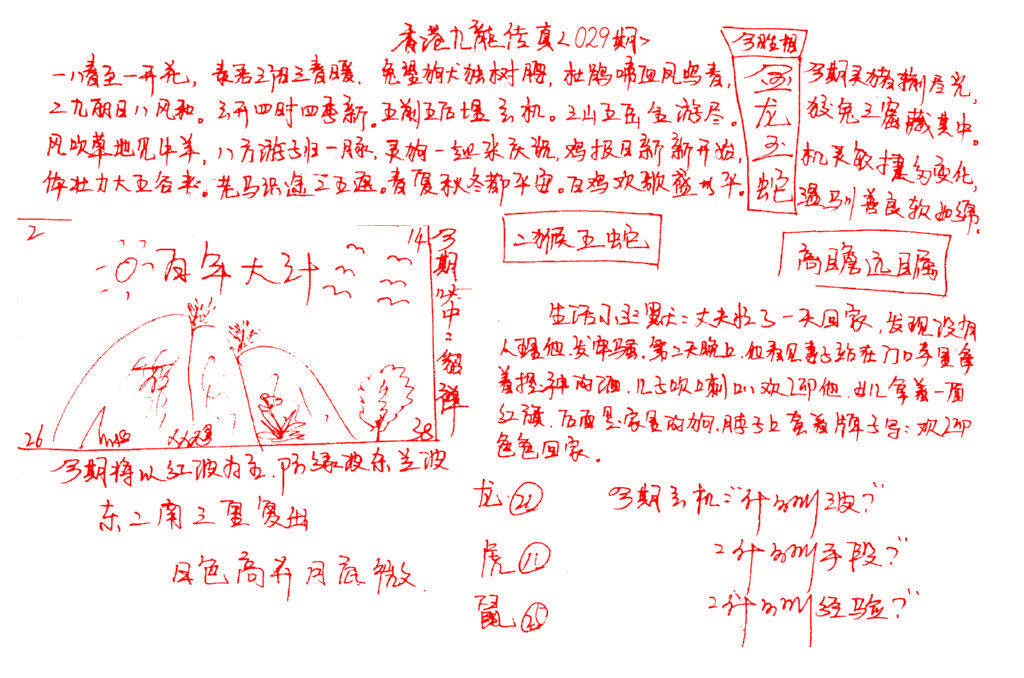 香港九龍传真<029期>
一八春至一开花，春君三阳三春暖，兔望狗犬独树膀，杜鹃啼血风鸣春，
二九朝日八风和。云开四时四季新。五前五后堪玄机。三山五岳全游尽。
风吹草地见牛羊，八方游子归一脉，灵狗一起来庆祝，鸡报日新新开始，
体壮力大五谷丰。老马识途三五返。春夏秋冬都平安。百鸡欢歌盛
今胜相
金龙玉蛇
今期灵猪剩尽光，
狡兔三窟藏其中。
机灵敏捷多变化，
温驯善良软如绵。
2
14
百年大计
26
38
今期
中：
二猴五蛇
高瞻远瞩
生活小幽默：丈夫忙了一天回家，发现没有
人理他，发牢骚，第二天晚上，他看见妻子站在门口手里拿
着提神的酒，儿子吹喇叭欢迎他，女儿拿着一面
红旗，后面是家里的狗，脖子上套着牌子写：欢迎
色色回家。
今期将以红波为主，防绿波东兰波
东二南三里复出
日色高升月底微
龙
虎 11
鼠
今期玄机："什么叫波？"
"什么叫手段？"
"什么叫经验？"